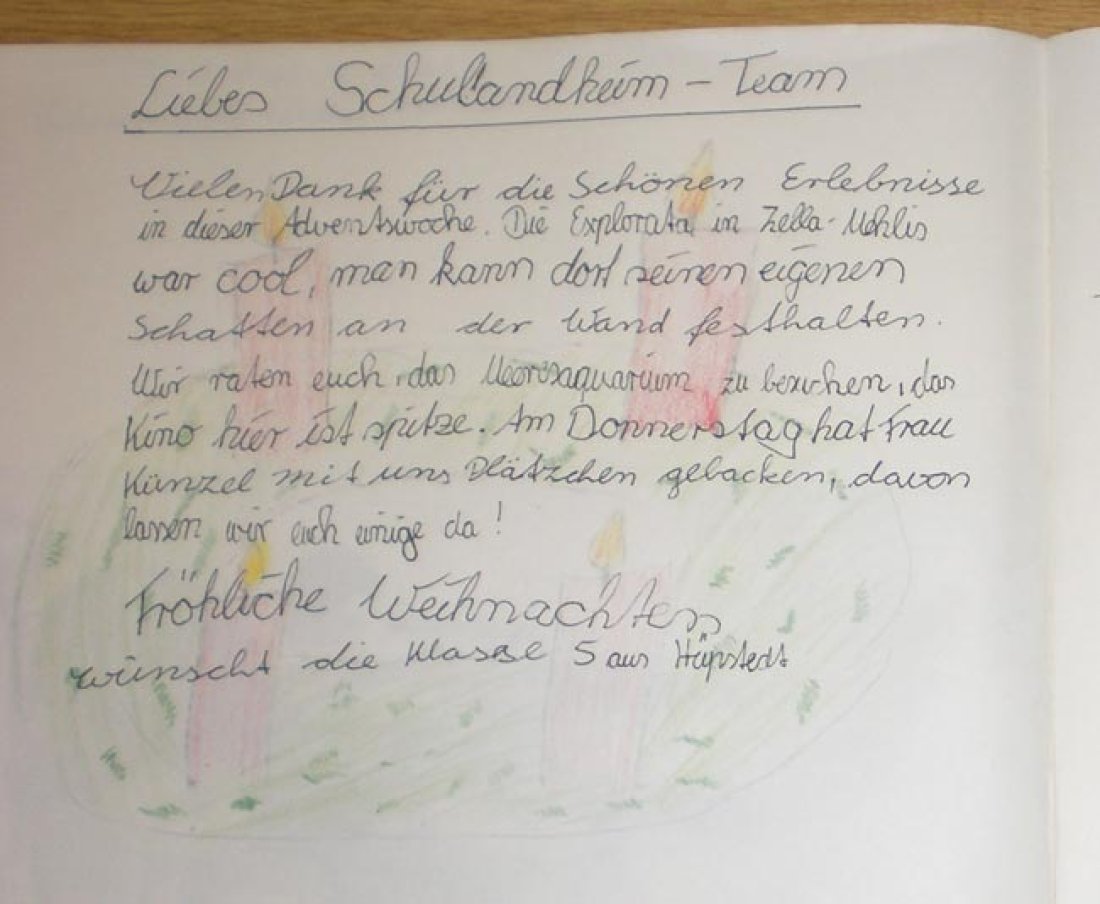 Liebes Schullandheim-Team
Vielen Dank für die Schönen Erlebnisse
in dieser Adventswoche. Die Explorata in Zella-Mehlis
war cool, man kann dort seinen eigenen
Schatten an der Wand festhalten.
Wir raten euch, das Meeresaquarium zu besuchen, das
Kino hier ist spitze. Am Donnerstag hat Frau
Künzel mit uns Plätzchen gebacken, davon
lassen wir euch einige da!
Fröhliche Weihnachten
wünscht die Klasse 5 aus Hüpstedt